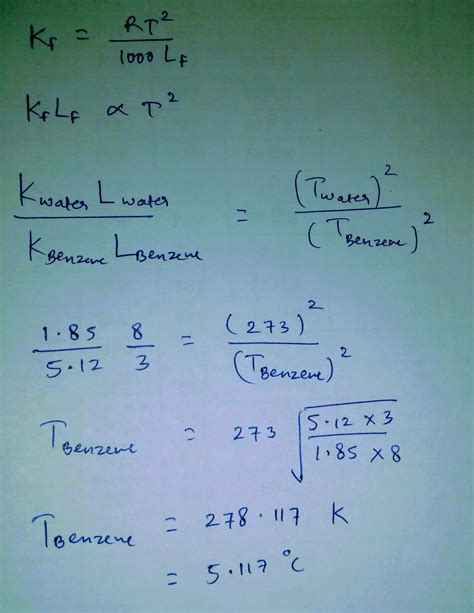 Kf = RT² / 1000 Lf
Kf Lf ∝ T²
K water L water / K Benzene L Benzene = (T water)² / (T Benzene)²
1.85 / 5.12 8 / 3 = (273)² / (T Benzene)²
T Benzene = 273 √(5.12 × 3 / 1.85 × 8)
T Benzene = 278.117 K
= 5.117 °C